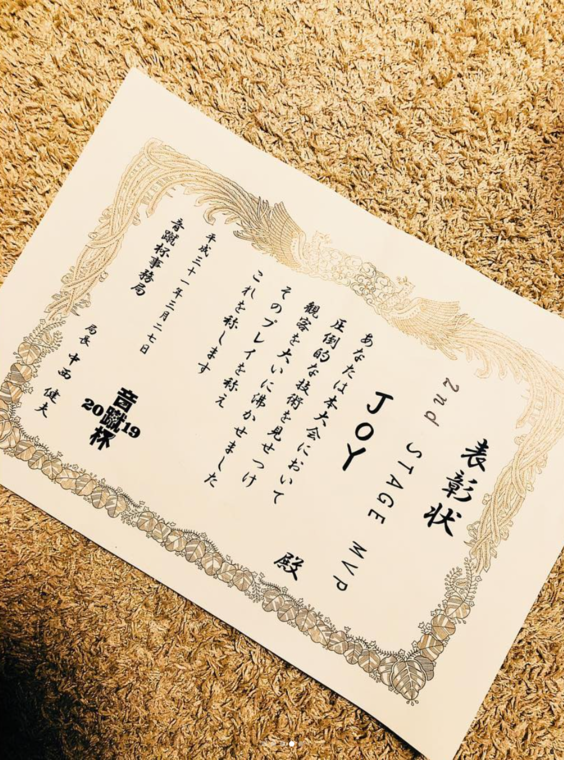 表彰状
2nd STAGE MVP
JOY
殿
あなたは本大会において
圧倒的な技術を見せつけ
観客を大いに沸かせました
そのプレイを称え
これを称します
平成三十一年三月二七日
音蹴杯事務局
局長 中西 健夫
音蹴杯
2019